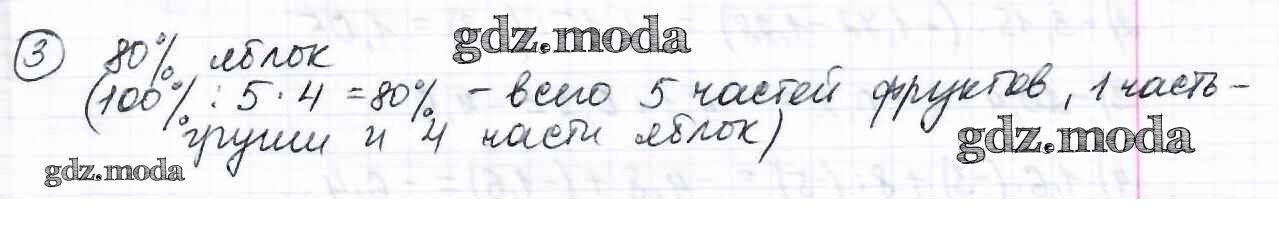 ③ 80% яблок gdz.moda
(100% : 5 · 4 = 80% - всего 5 частей фруктов, 1 часть -
груши и 4 части яблок) gdz.moda
gdz.moda